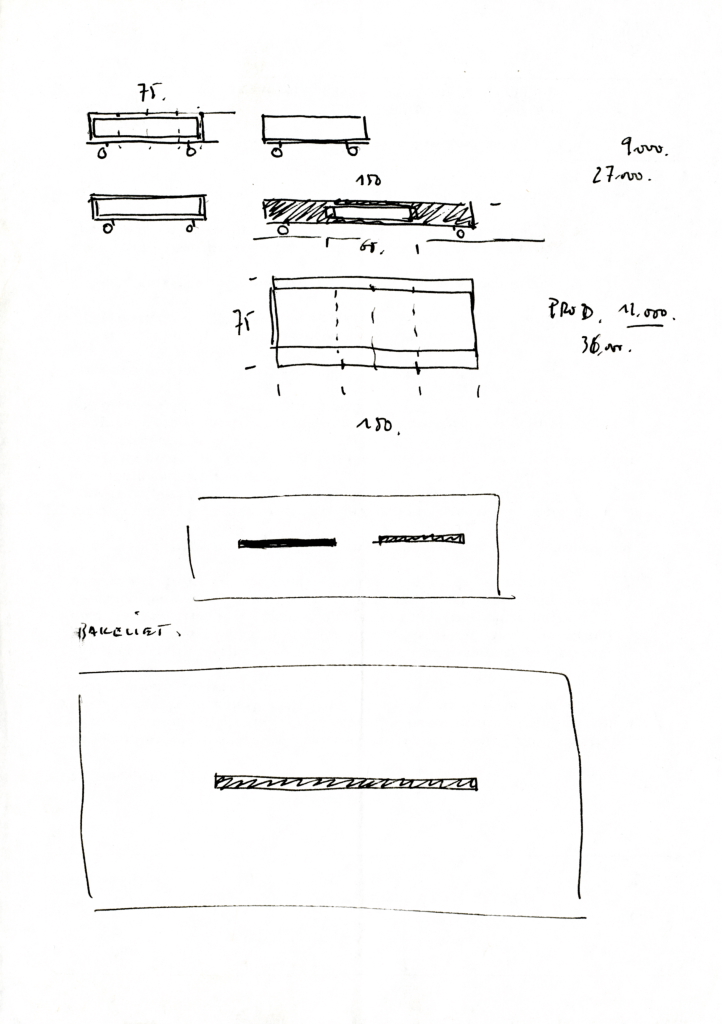 75.
9.000.
27.000.
150
65.
75
PROD. 12.000.
36.000.
150.
BAKELIET.